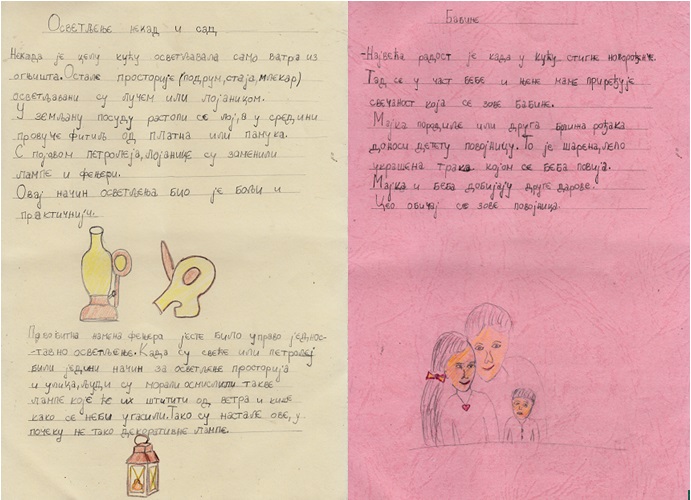 Осветљење некад и сад
Некада је целу кућу осветљавала само ватра из
огњишта. Остале просторије (подрум, стаја, млекар)
осветљавани су лучем или лојаницом.
У земљану посуду растопи се лој, а у средини
провуче фитиљ од платна или памука.
С појавом петролеја, лојанице су замениле
лампе и фењери.
Овај начин осветљења био је бољи и
практичнији.
Првобитна намена фењера јесте било управо једнос-
-тавно осветљење. Када су свеће или петролеј
били једини начин за осветљене просторија
и улица, људи су морали осмислити такве
лампе које ће их штитити од ветра и кише
како се неби угасили. Тако су настале ове, у
почеку не тако декоративне лампе.
Бабине
-Највећа радост је када у кућу стигне новорођенче.
Тад се у част бебе и њене маме приређује
свечаност која се зове Бабине.
Мајка породиље или друга ближа рођака
доноси детету повојницу. То је шарена, лепо
украшена трака којом се беба повија.
Мајка и беба добијају друге дарове.
Цео обичај се зове повојница.